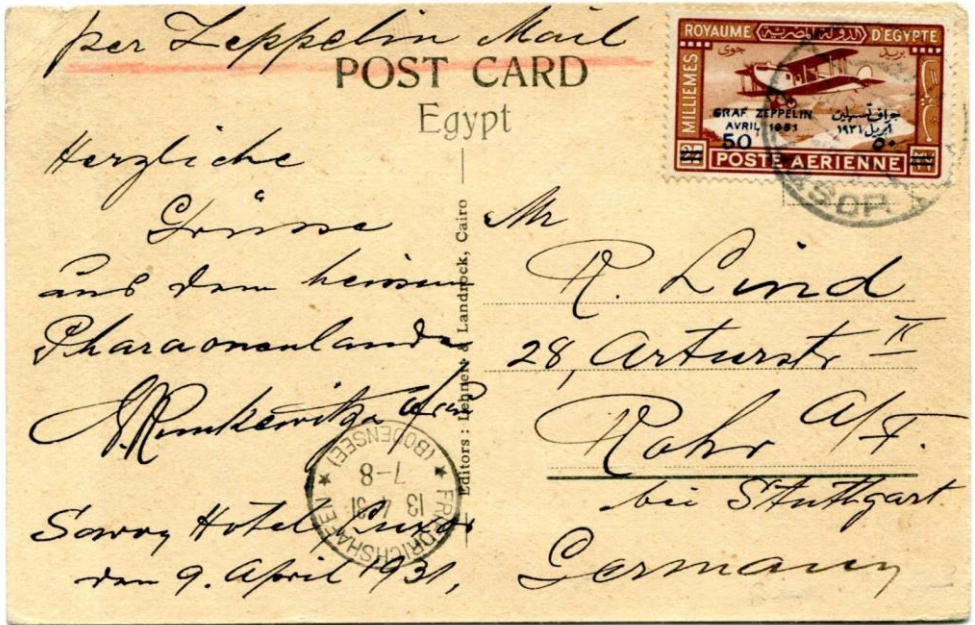 per Zeppelin Mail
POST CARD
Egypt
ROYAUME الدولة المصرية D'EGYPTE
جوى بريد
MILLIEMES
GRAF ZEPPELIN جراف تسبلين
AVRIL 1931 ابريل ١٩٣١
50 ٥٠
POSTE AERIENNE
Herzliche
Grüsse
aus dem heissen
Pharaonenlande
Savoy Hotel, Luxor
den 9. April 1931,
Editors : Lehnert & Landrock, Cairo
FRIEDRICHSHAFEN
(BODENSEE)
13 4 31
7-8
Mr
R. Lind
28, Arturstr II
Rohr a/F.
bei Stuttgart
Germany